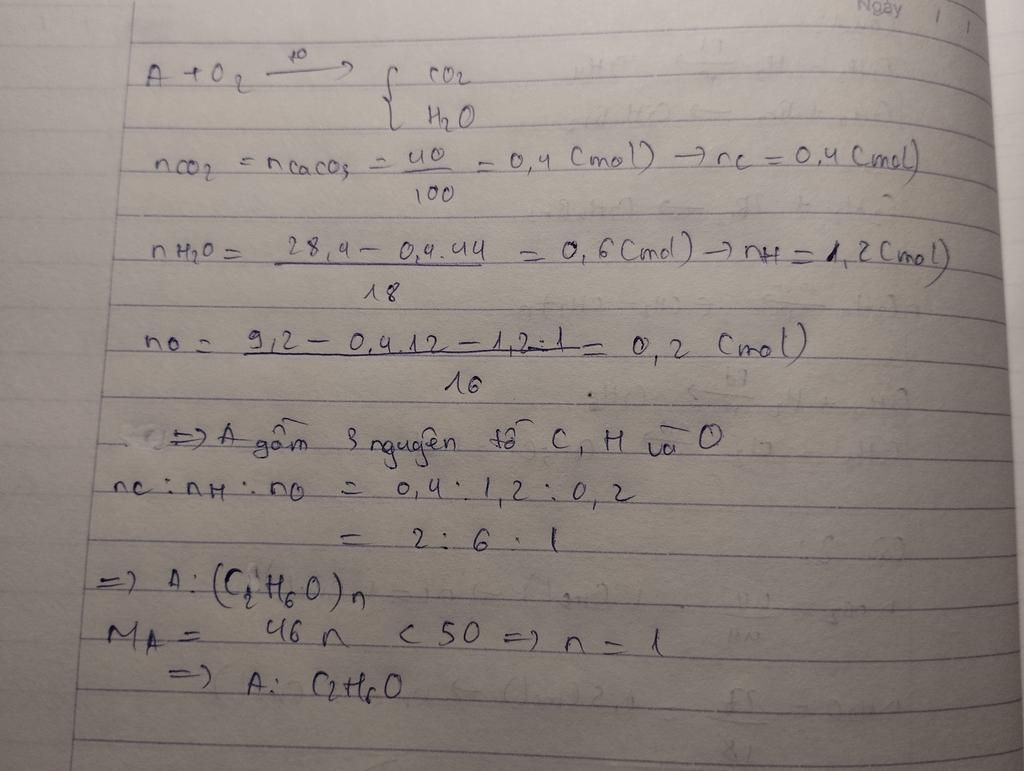 Ngày / /
A + O2 —t0→ { CO2
H2O
nCO2 = nCaCO3 = 40/100 = 0,4 (mol) → nC = 0,4 (mol)
nH2O = (28,4 - 0,4.44)/18 = 0,6 (mol) → nH = 1,2 (mol)
nO = (9,2 - 0,4.12 - 1,2:1)/16 = 0,2 (mol)
=> A gồm 3 nguyên tố C, H và O
nC : nH : nO = 0,4 : 1,2 : 0,2
= 2 : 6 : 1
=> A: (C2H6O)n
MA = 46n < 50 => n = 1
=> A: C2H6O